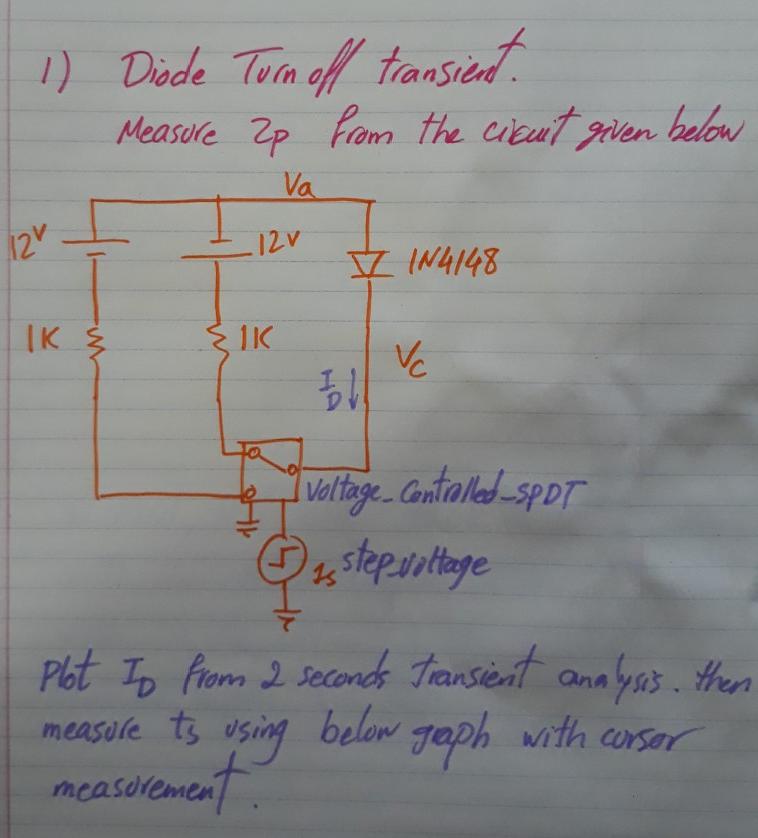 1) Diode Turn off transient.
Measure 2p from the cikuit given below
Va
12V
12V
1N4148
1K
1K
VC
ID
Voltage_Controlled_SPDT
1s step_voltage
Plot ID from 2 seconds transient analysis. then
measure ts using below graph with cursor
measurement.